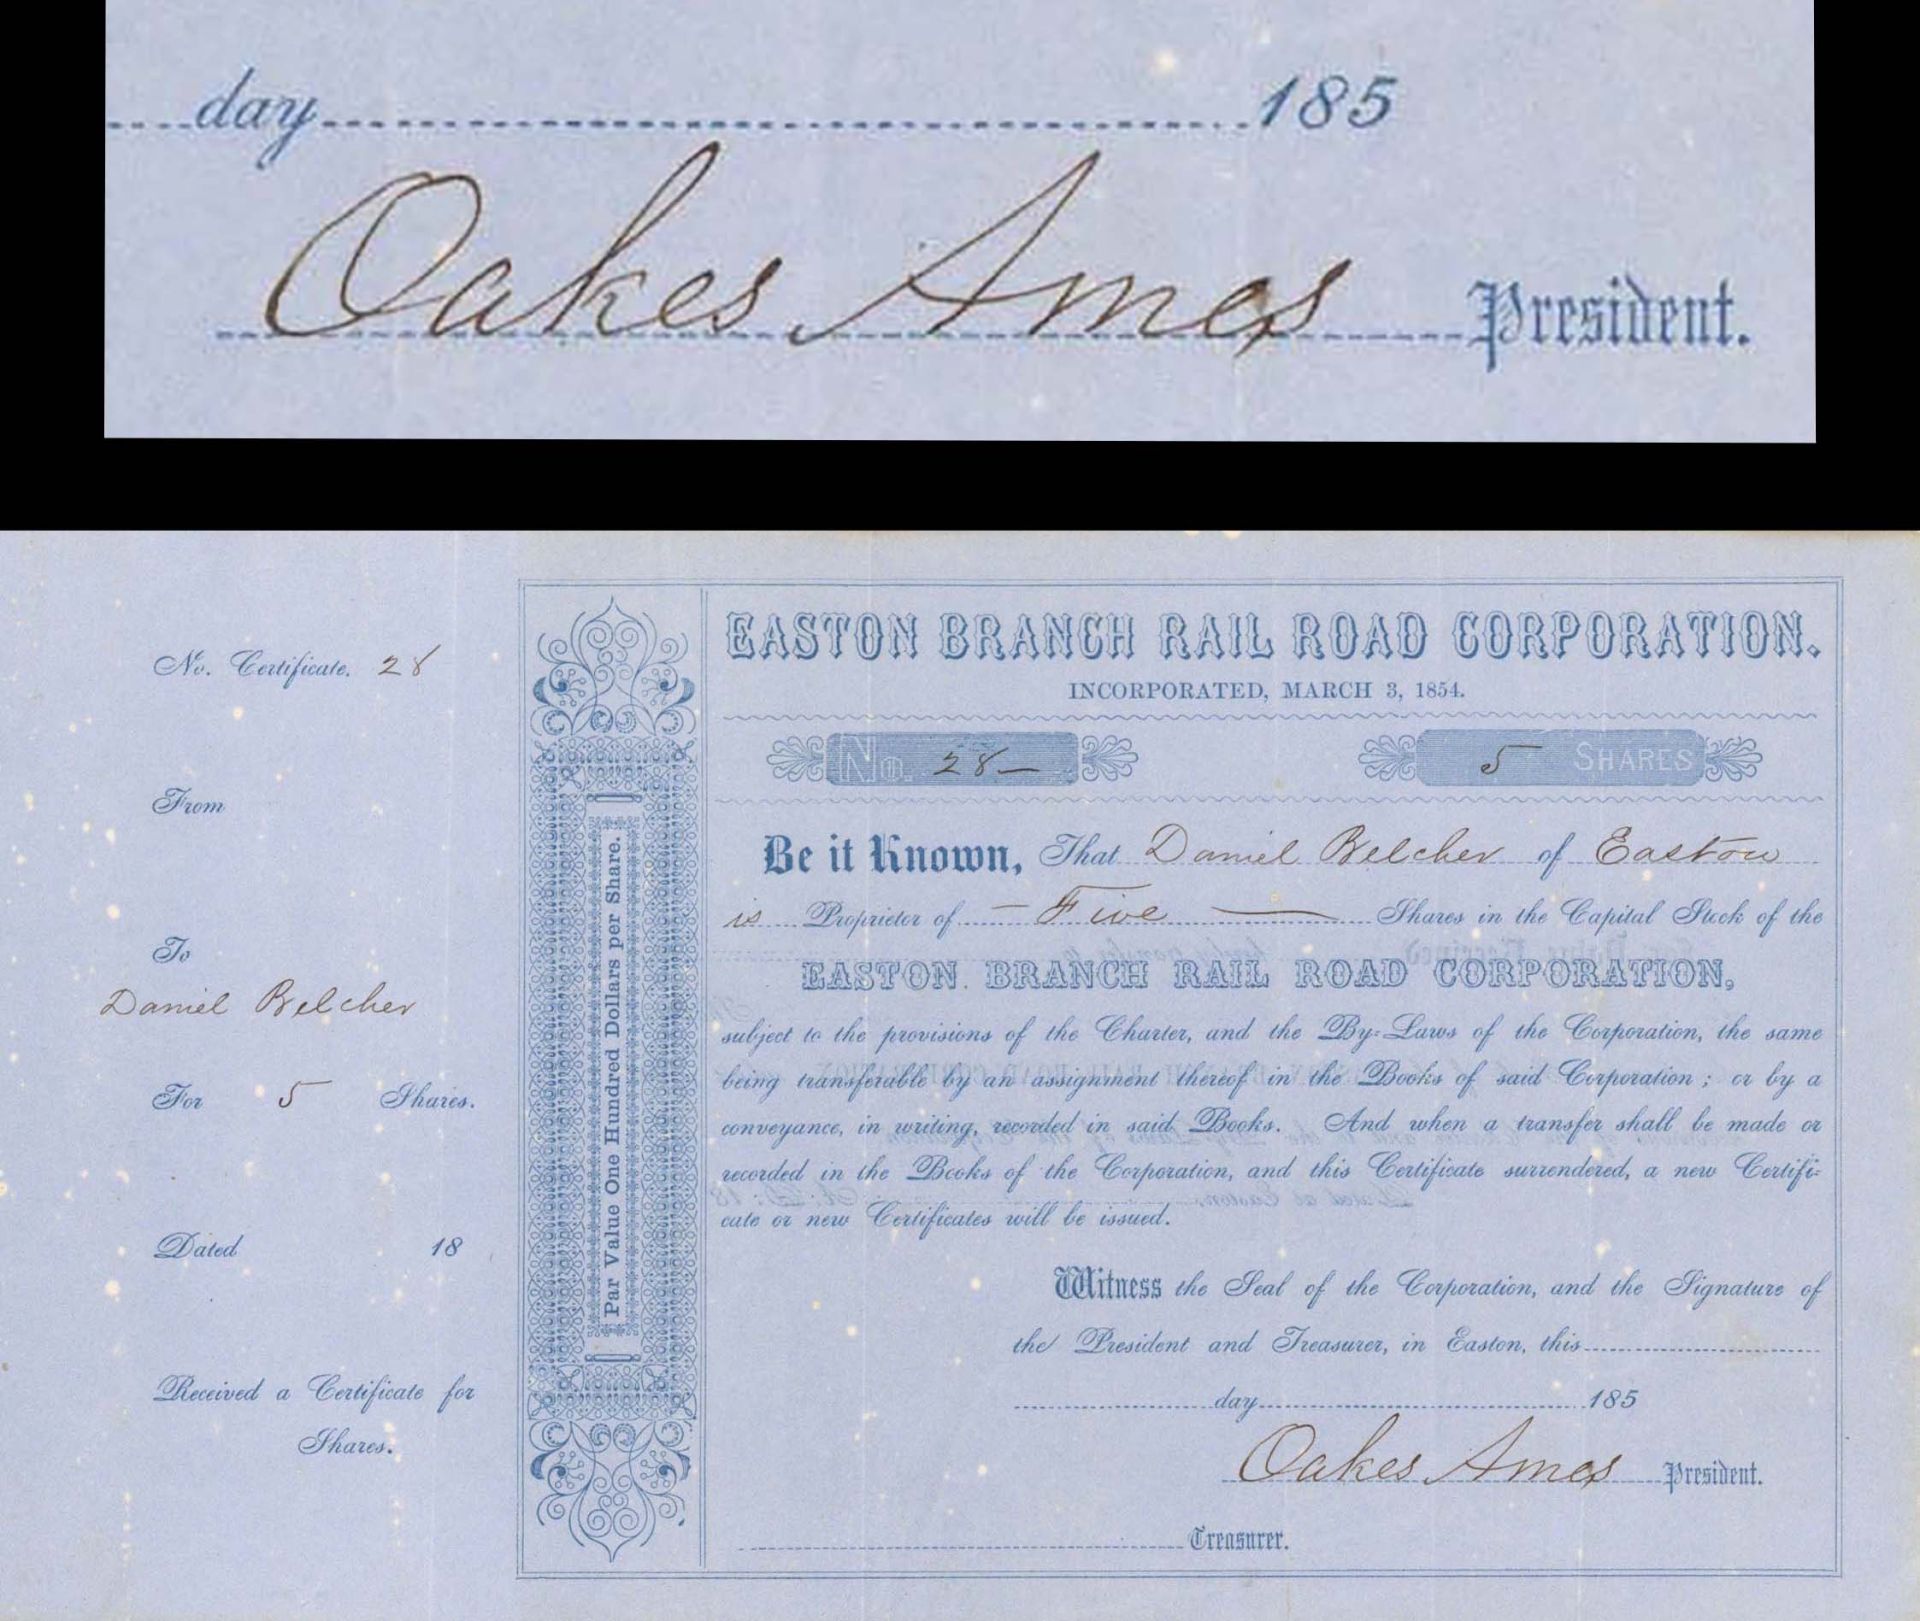 day 185
Oakes Ames President.
EASTON BRANCH RAIL ROAD CORPORATION.
INCORPORATED, MARCH 3, 1854.
No. 28 — 5 SHARES
Be it Known, That Daniel Belcher of Easton
is Proprietor of — Five — Shares in the Capital Stock of the
EASTON BRANCH RAIL ROAD CORPORATION,
subject to the provisions of the Charter, and the By-Laws of the Corporation, the same
being transferable by an assignment thereof in the Books of said Corporation; or by a
conveyance, in writing, recorded in said Books. And when a transfer shall be made or
recorded in the Books of the Corporation, and this Certificate surrendered, a new Certifi-
cate or new Certificates will be issued.
Witness the Seal of the Corporation, and the Signature of
the President and Treasurer, in Easton, this
day 185
Oakes Ames President.
Treasurer.
Par Value One Hundred Dollars per Share.
No. Certificate. 28
From
To
Daniel Belcher
For 5 Shares.
Dated 18
Received a Certificate for
Shares.